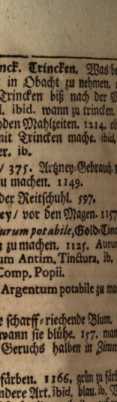 nck. Trincken. Was b
in Obacht zu nehmen.
Trincken biß nach der
l. ibid. wann zu trincken.
nden Mahlzeiten. 1214.
mit Trincken mache. ibid.
er. ib.
/ 375. Artzney-Gebrauch
u machen. 1149.
der Reitschuhl. 597.
ey/ vor den Magen. 1157
urum potabile, Gold-Tin
n zu machen. 1125. Auru
um Antim. Tinctura, ib.
Comp. Popii.
Argentum potabile zu ma
e scharff-riechende Blum.
wann sie blühe. 157.
Geruchs halben in Zimm
färben. 1166. grün zu fär
ndere Art. ibid. blau. ib.